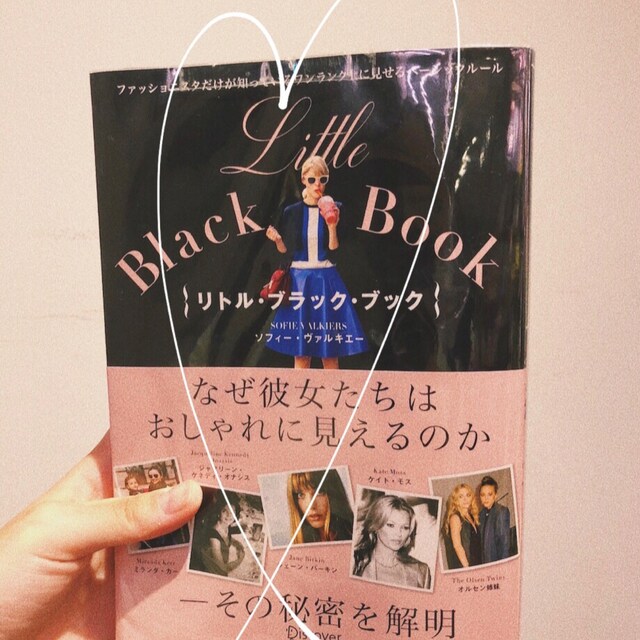 ファッショニスタだけが知っているワンランク上に見せるベーシックルール
Little
Black Book
リトル・ブラック・ブック
SOFIE VALKIERS
ソフィー・ヴァルキエー
なぜ彼女たちは
おしゃれに見えるのか
Jacqueline Kennedy
ジャクリーン・
ケネディ・オナシス
Kate Moss
ケイト・モス
Miranda Kerr
ミランダ・カー
Jane Birkin
ジェーン・バーキン
The Olsen Twins
オルセン姉妹
—その秘密を解明
Discover